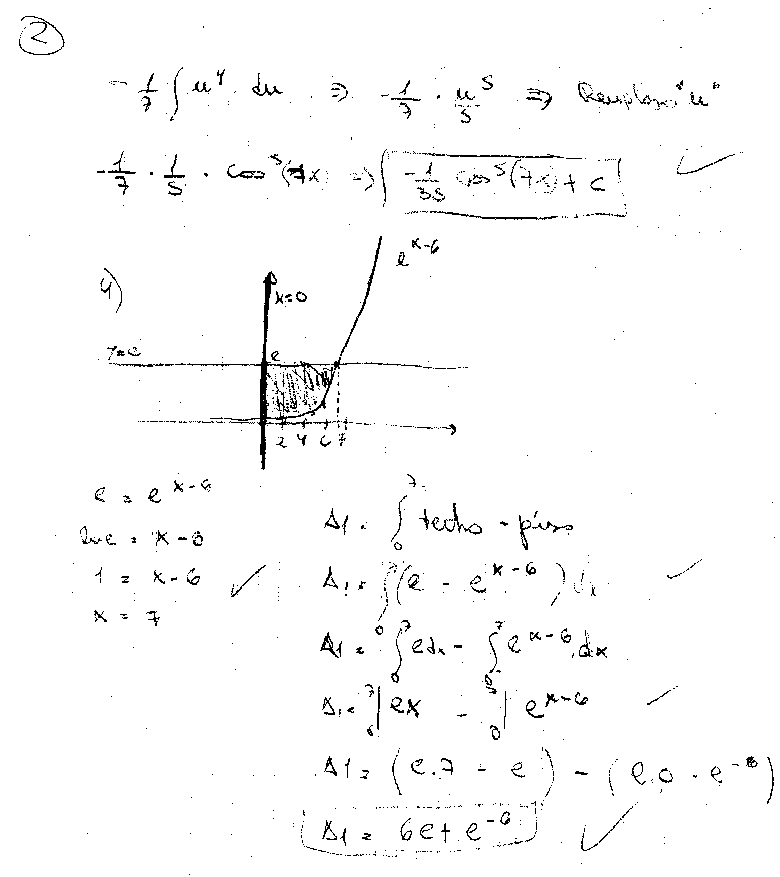 2
-1/7 ∫ u⁴ du ⇒ -1/7 · u⁵/5 ⇒ Remplazo "u"
-1/7 · 1/5 · cos⁵(7x) ⇒ -1/35 cos⁵(7x) + c ✓
4)
e^(x-6)
x=0
y=e
e
2 4 6 7
e = e^(x-6)
ln e = x-6
1 = x-6 ✓
x = 7
A1 = ∫₀⁷ techo - piso
A1 = ∫₀⁷ (e - e^(x-6)) dx ✓
A1 = ∫₀⁷ e dx - ∫₀⁷ e^(x-6) dx
A1 = ⁷₀| ex - ⁷₀| e^(x-6) ✓
A1 = (e.7 - e) - (e.0 - e^(-6))
A1 = 6e + e^(-6) ✓